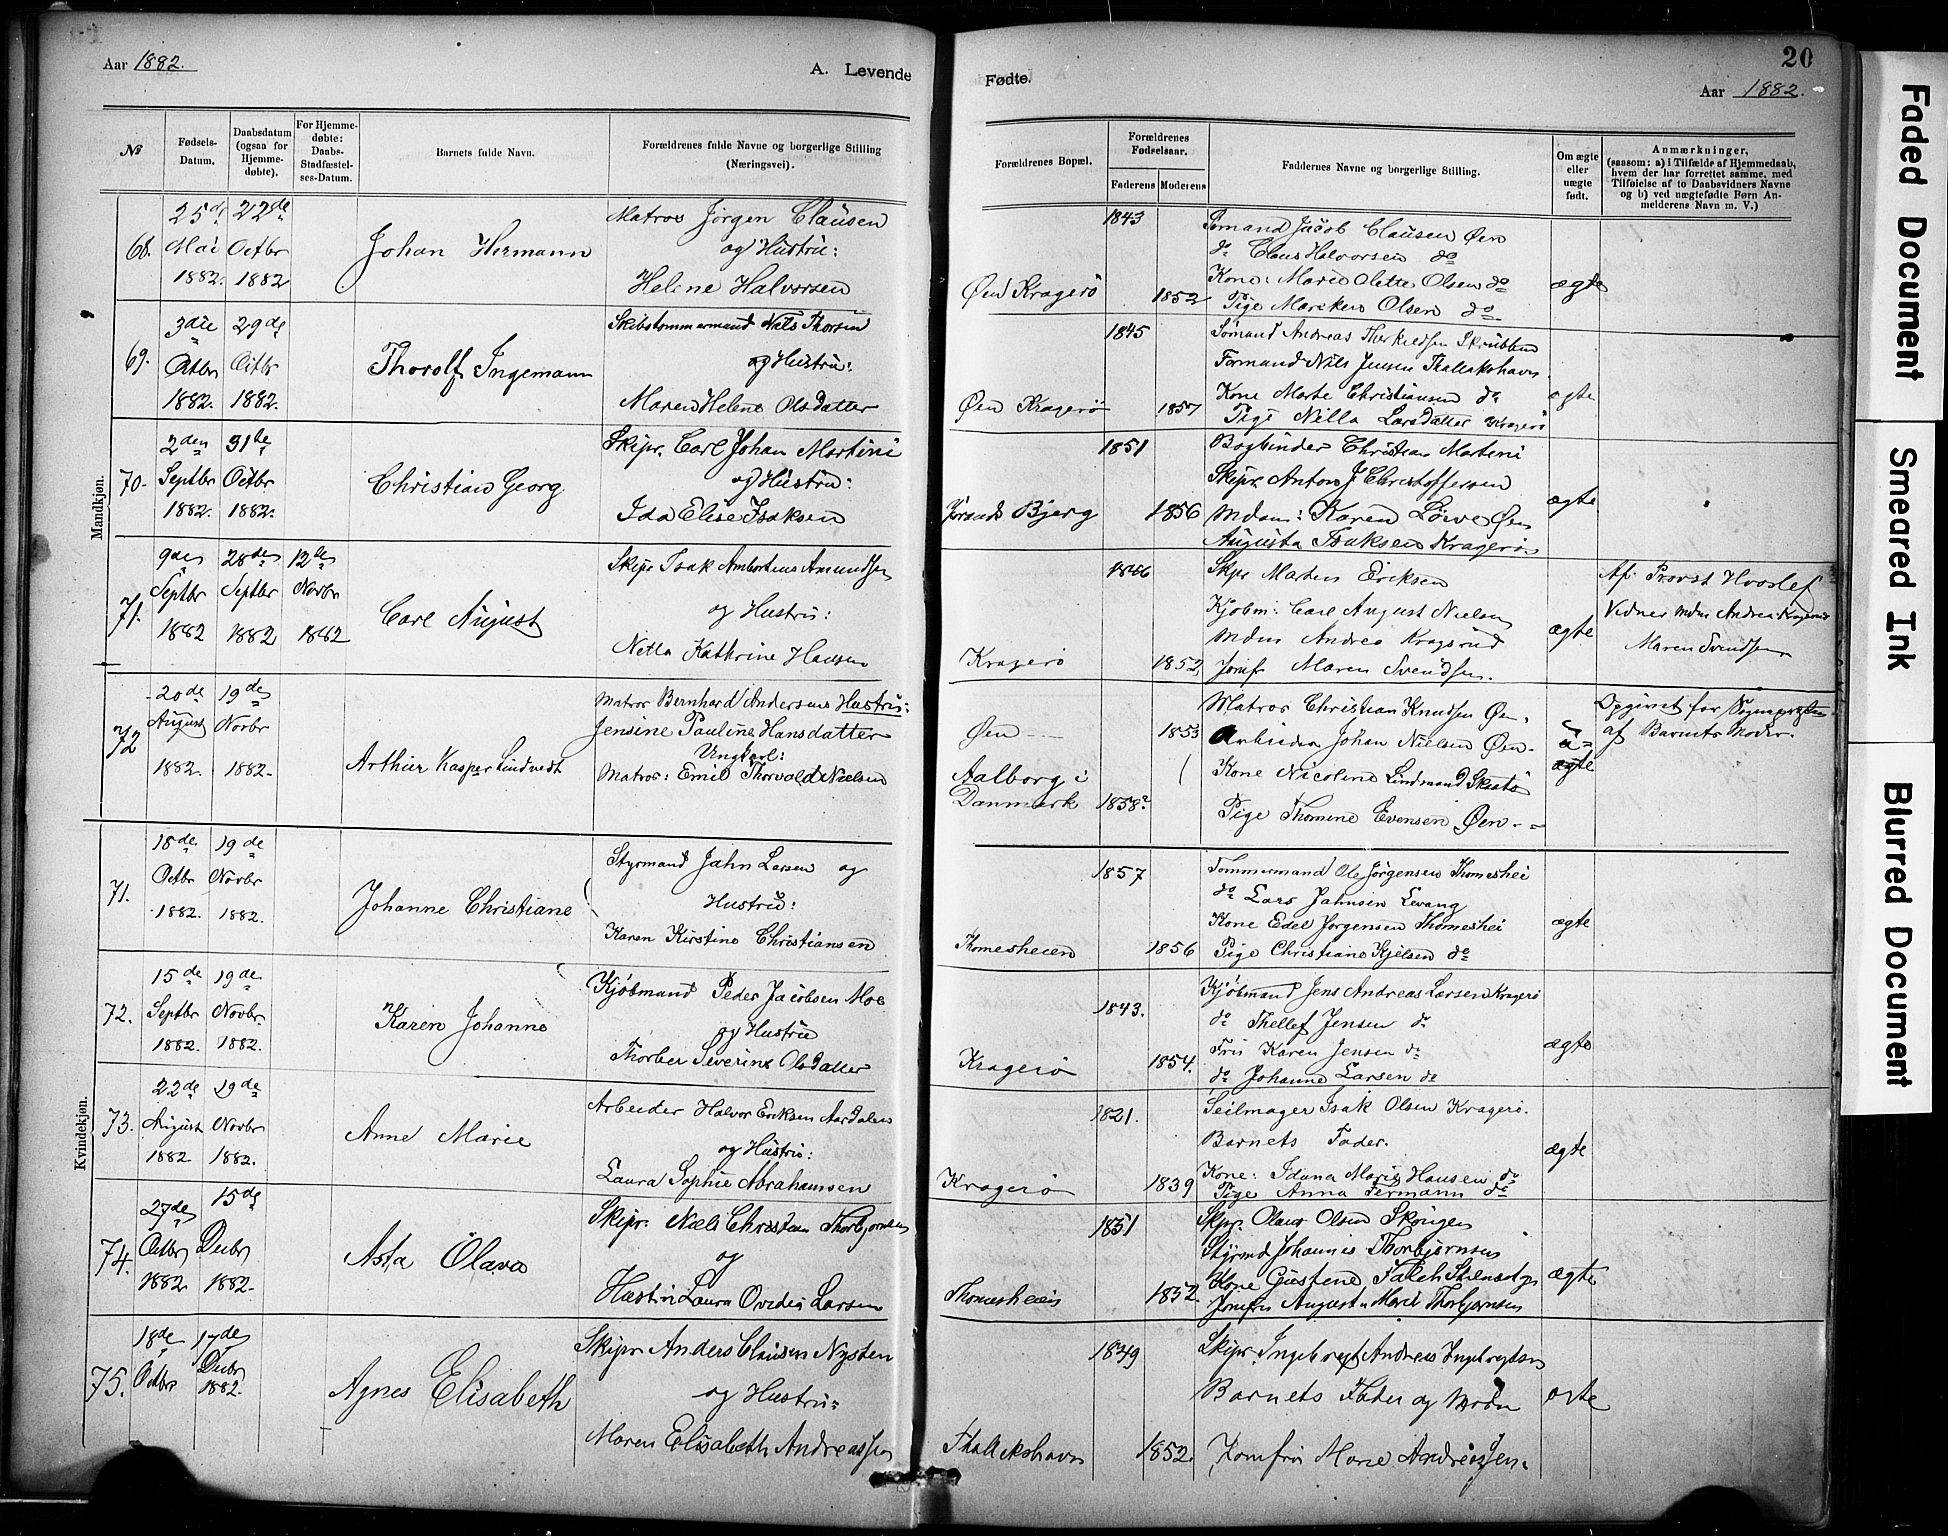 Aar 1882.
A. Levende
Fødte.
20
Aar 1882.
№
Fødsels-Datum.
Daabsdatum (ogsaa for Hjemme-døbte).
For Hjemme-døbte: Daabs-Stadfæstel-ses-Datum.
Barnets fulde Navn.
Forældrenes fulde Navne og borgerlige Stilling (Næringsvei).
Forældrenes Bopæl.
Forældrenes Fødselsaar.
Faderens
Moderens
Faddernes Navne og borgerlige Stilling.
Om ægte eller uægte født.
Anmærkninger,
(saasom: a) i Tilfælde af Hjemmedaab,
hvem der har forrettet samme, med
Tilføielse af to Daabsvidners Navne
og b) ved uægtefødte Børn An-
melderens Navn m. V.)
Mandkjøn.
68.
25de Mai 1882.
22de Octbr 1882
Johan Hermann
Matros Jørgen Clausen
og Hustru:
Helene Halvorsen
Øen Kragerö
1843
1852
Sømand Jacob Clausen Øen
do Claus Halvorsen do
Kone: Maren Olette Olsen do
Pige Mareken Olsen do
ægte
69.
3die Octbr 1882.
29de Octbr 1882.
Thorolf Ingemann
Skibstømmermand Nils Thorsen
og Hustru:
Maren Helene Olsdatter
Øen Kragerö
1845
1857
Sømand Andreas Therkildsen Skrubben
Formand Nils Jensen Thallakshavn
Kone Marte Christiansen do
Pige Nilla Larsdatter Kragerö
ægte
70.
2den Septbr 1882.
31te Octbr 1882.
Christian Georg
Skipr. Carl Johan Martini
og Hustru:
Ida Elise Isaksen
Bjerg
1851
1856
Bogbinder Christian Martini
Skipr. Anton J Christoffersen
Mdam: Karen Löwe Øen
Augusta Isaksen Kragerö
ægte
71.
9de Septbr 1882
28de Septbr 1882
12te Novbr 1882
Carl August
Skipr Isak Ambortius Amundsen
og Hustru:
Nella Kathrine Hansen
Kragerö
1846
1852
Skpr Marten Eriksen
Kjøbm: Carl August Nielsen
Mdm Andrea Kragsrud
Jomfr Maren Svendsen.
ægte
Af: Provst Hvoslef
Vidner Mdm Andrea Kragsrud
Maren Svendsen
72
20de August 1882.
19de Novbr 1882.
Arthur Kasper Lindvedt
Matros Bernhard Andersens Hustru:
Jensine Pauline Hansdatter
Ungkarl:
Matros: Emil Thorvald Nielsen
Øen
Aalborg i
Danmark
1853
1858?
Matros Christian Knudsen Øen.
Arbeider Johan Nielsen Øen
Kone Nicoline Lindmand Skaatö
Pige Thomine Evensen Øen
u=
ægte
Opgivet for Sognepresten
af Barnets Moder.
Kvindekjøn.
71.
18de Octbr 1882.
19de Novbr 1882.
Johanne Christiane
Styrmand Jahn Larsen og
Hustru:
Karen Kirstine Christiansen
Thomesheien
1857
1856
Tømmermand Ole Jørgensen Thomeshei
do Lars Jahnsen Levang
Kone Edel Jørgensen Thomeshei
Pige Christiane Kjelsen do
ægte
72.
15de Septbr 1882.
19de Novbr. 1882.
Karen Johanne
Kjøbmand Peder Jacobsen Moe
og Hustru
Thorber Severine Olsdatter
Kragerö
1843.
1854.
Kjøbmand Jens Andreas Larsen Kragerö
do Thellef Jensen do
Fru Karen Jensen do
do Johanne Larsen do
ægte
73.
22de August 1882
19de Novbr 1882.
Anne Marie
Arbeider Halvor Eriksen Aardalen
og Hustru:
Laura Sophie Abrahamsen
Kragerö
1821.
1839
Seilmager Isak Olsen Kragerö.
Barnets Fader.
Kone: Idana Marie Hansen do
Pige Anna Fermann do
ægte
74.
27de Octbr 1882
15de Decbr 1882.
Asta Olava
Skipr. Niels Christian Thorbjørnsen
og
Hustru Laura Ovedia Larsen
Thomesheien
1851
1852.
Skpr. Olaus Olsen Skougen
Styrmd Johannes Thorbjørnsen
Kone Gustene Falch
Jomfru Augusta Marie Thorbjørnsen
ægte
75.
18de Octbr
17de Decbr 1882.
Agnes Elisabeth
Skipr Anders Clausen Nysten
og Hustru:
Maren Elisabeth Andreassen
Thallekshavn
1849
1852.
Skipr. Ingebregt Andreas Ingebregtsen
Barnets Fader og Moder
Jomfru Marie Andreassen.
ægte
Faded Document
Smeared Ink
Blurred Document